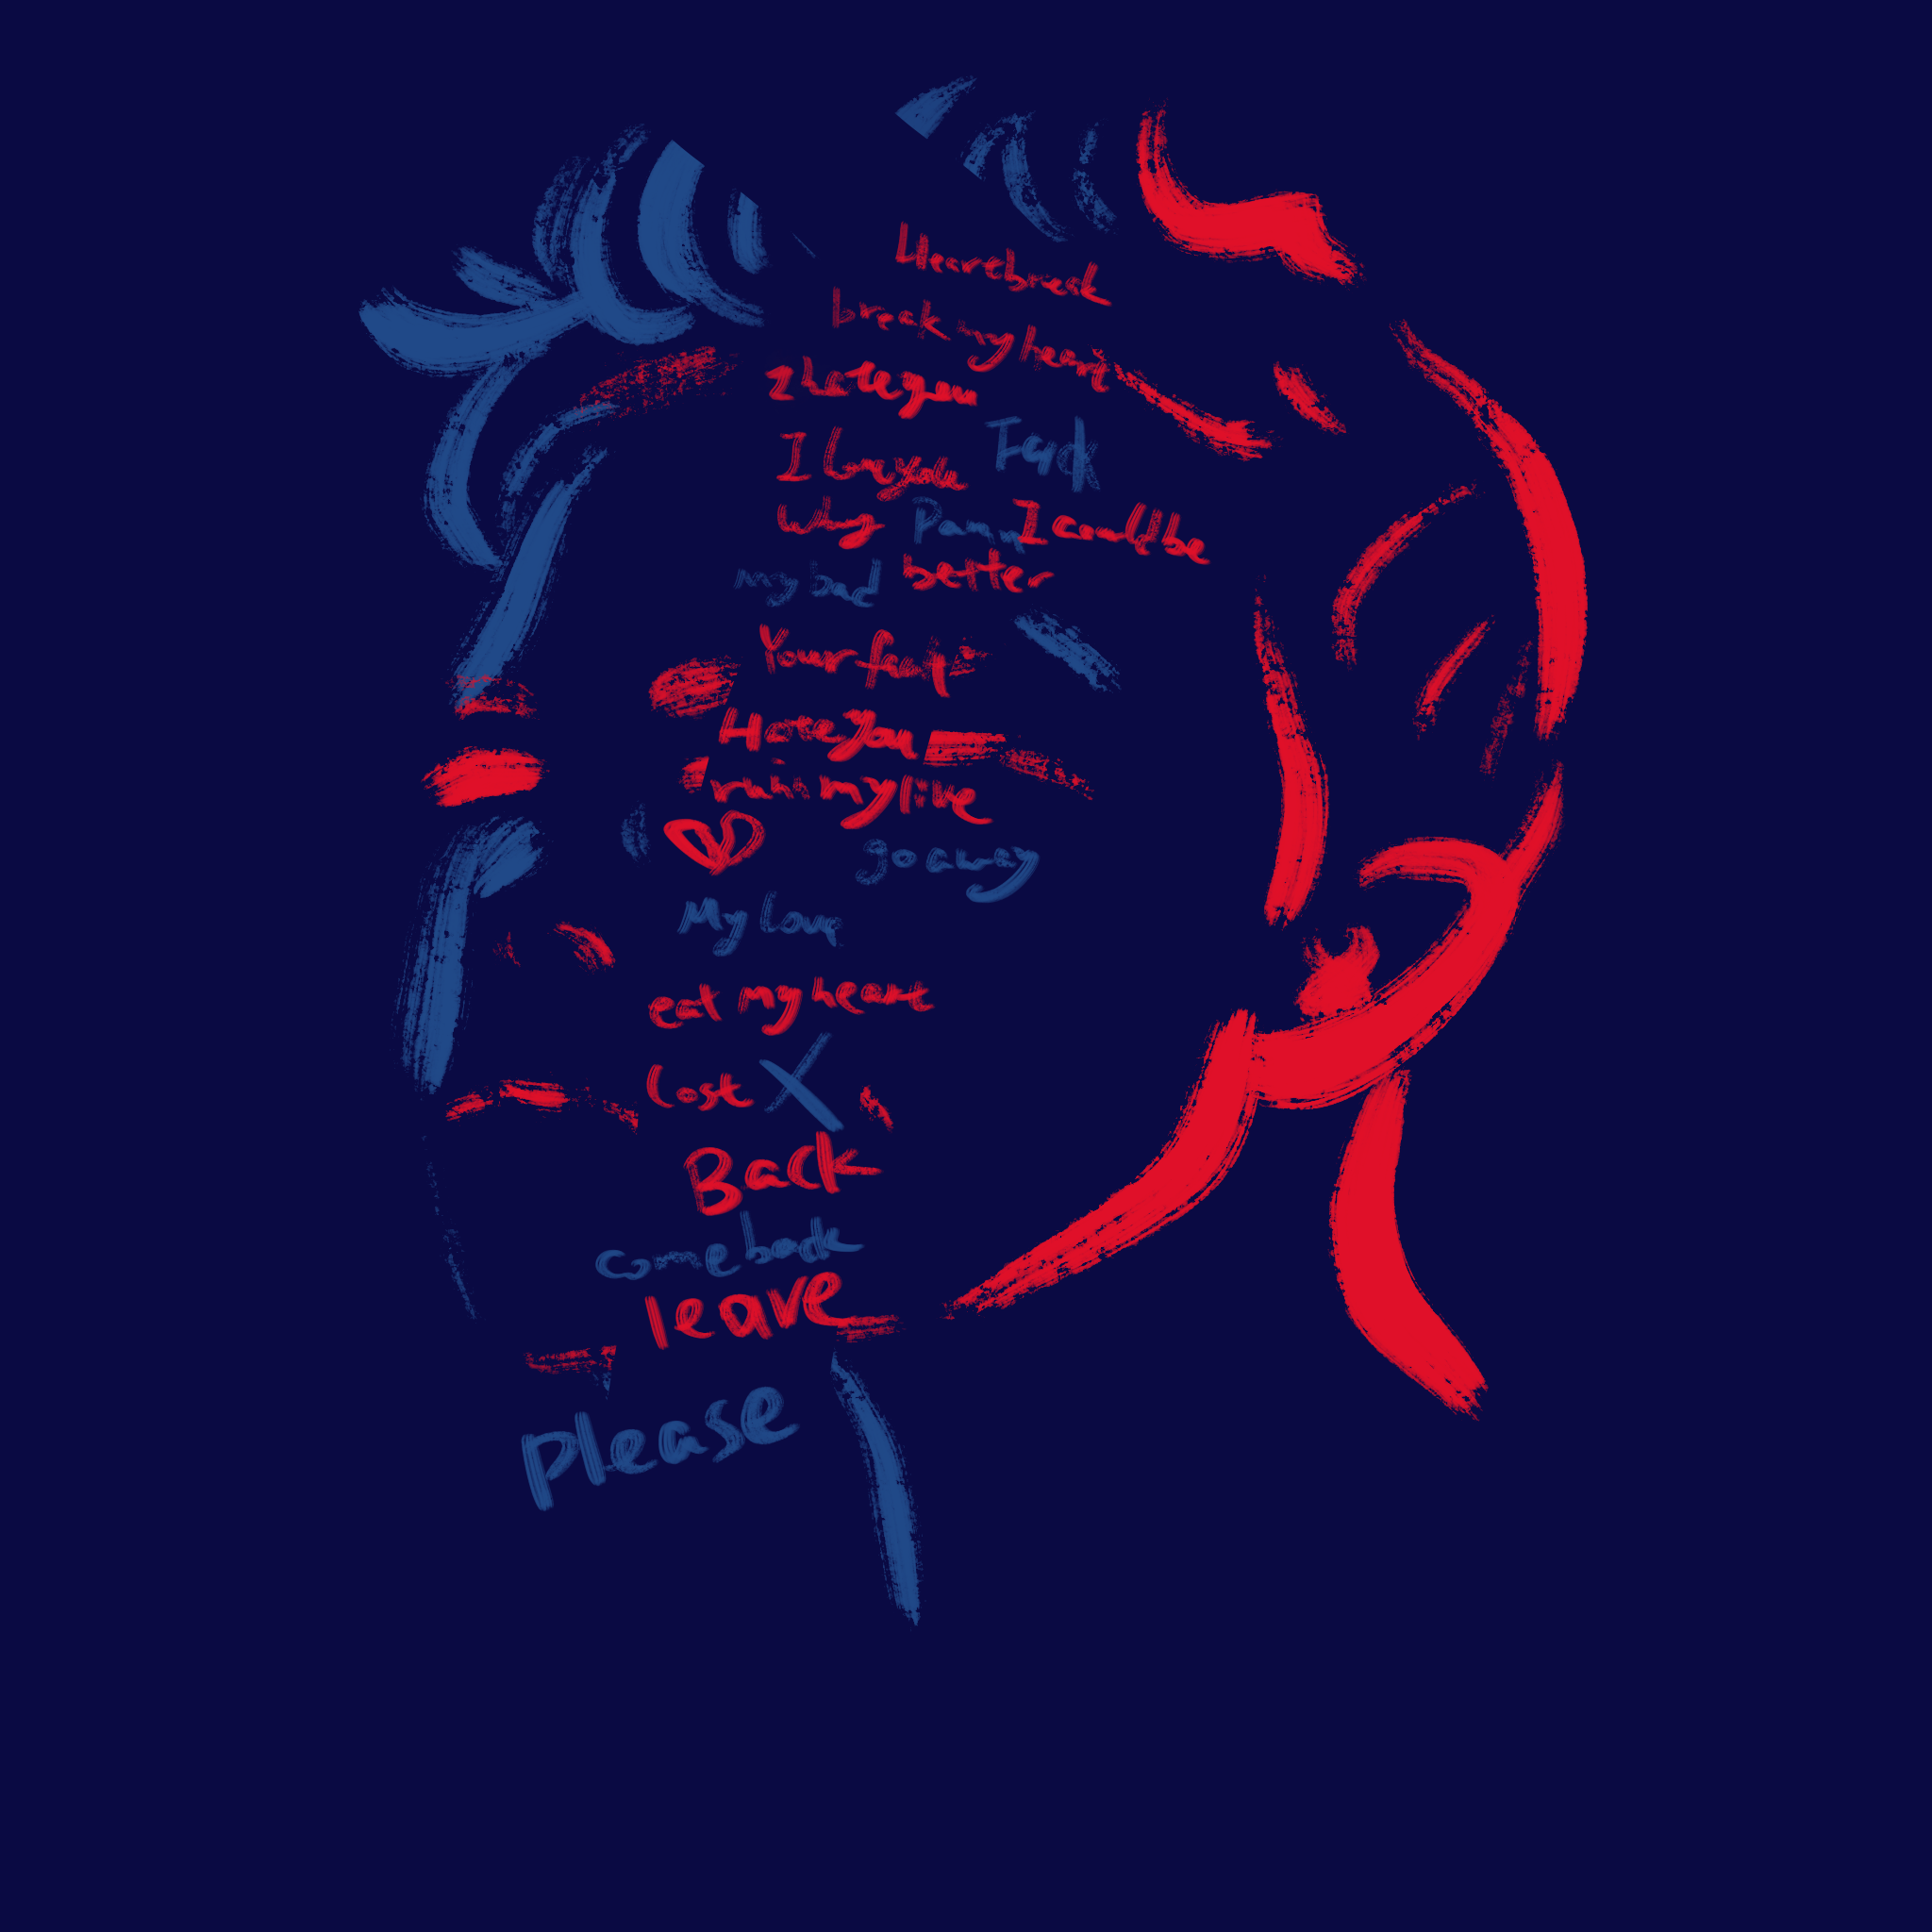 Heartbreak
break my heart
I hate you
I love you Fuck
Why Damn I could be
my bad better
Your fault
Hate you
ruin my live
go away
My love
eat my heart
lost X
Back
come back
leave
Please